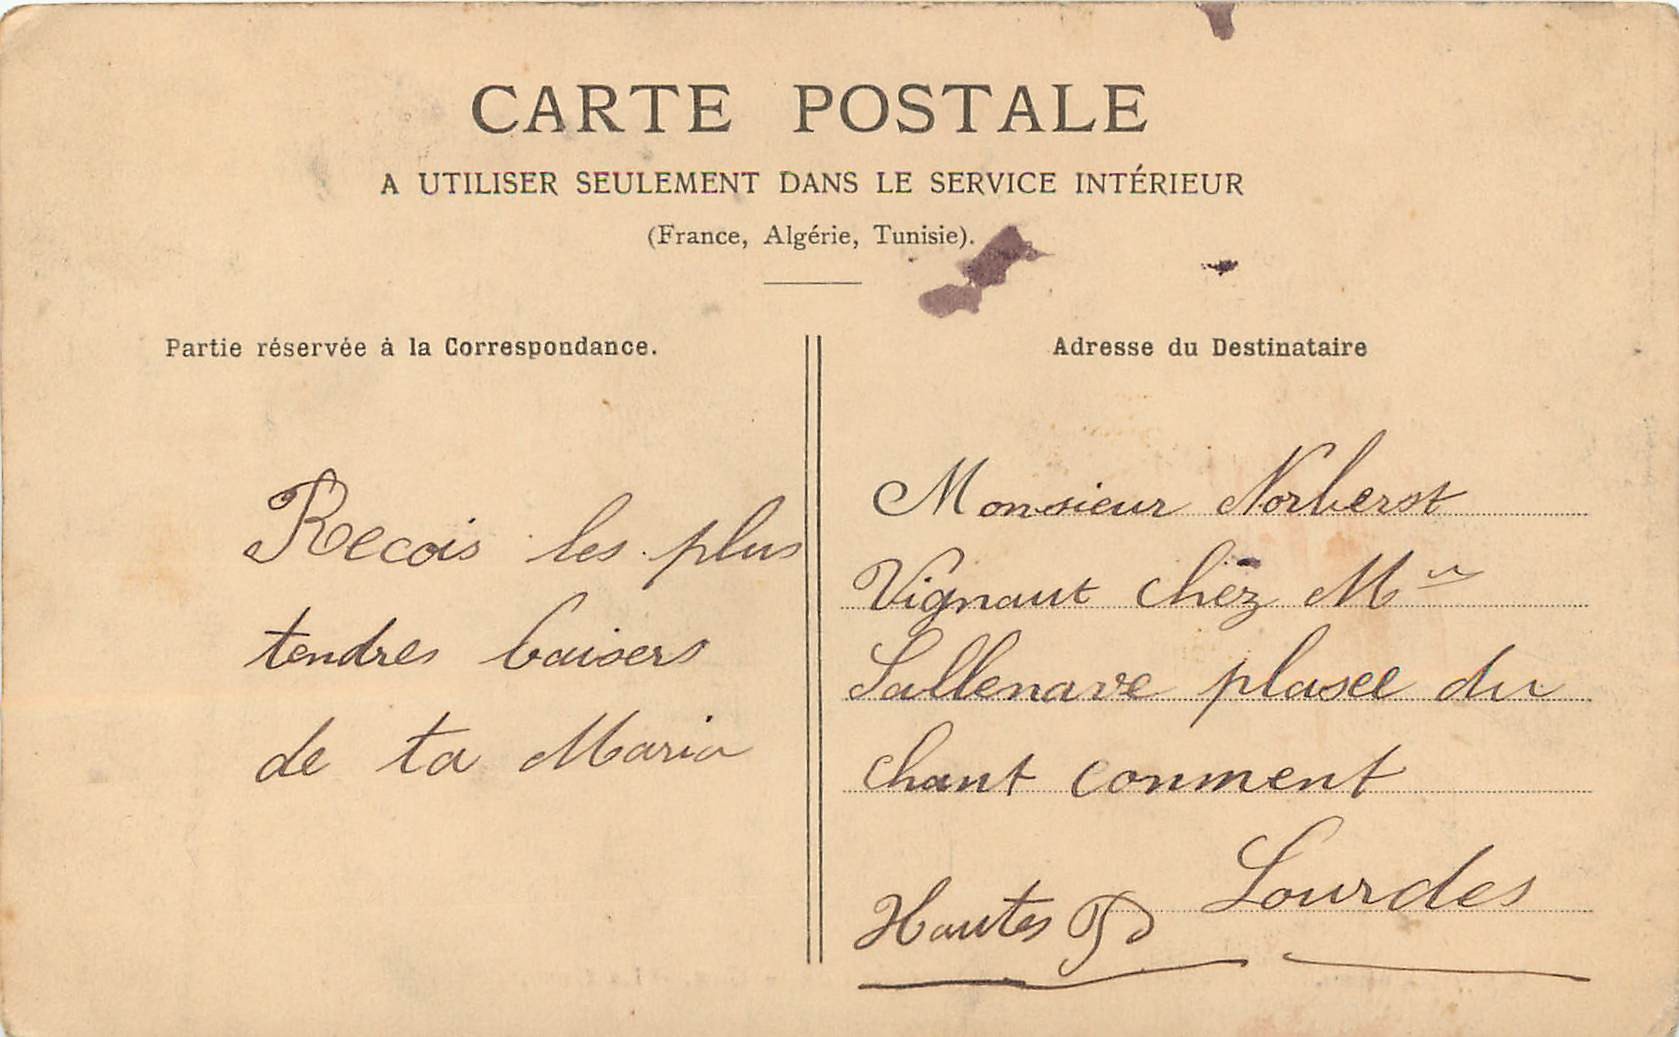 CARTE POSTALE
A UTILISER SEULEMENT DANS LE SERVICE INTÉRIEUR
(France, Algérie, Tunisie).
Partie réservée à la Correspondance.
Recois les plus
tendres baisers
de ta Maria
Adresse du Destinataire
Monsieur Norberst
Vignaut chez Mr
Sallenave plasee du
chant conment
Lourdes
Hautes P